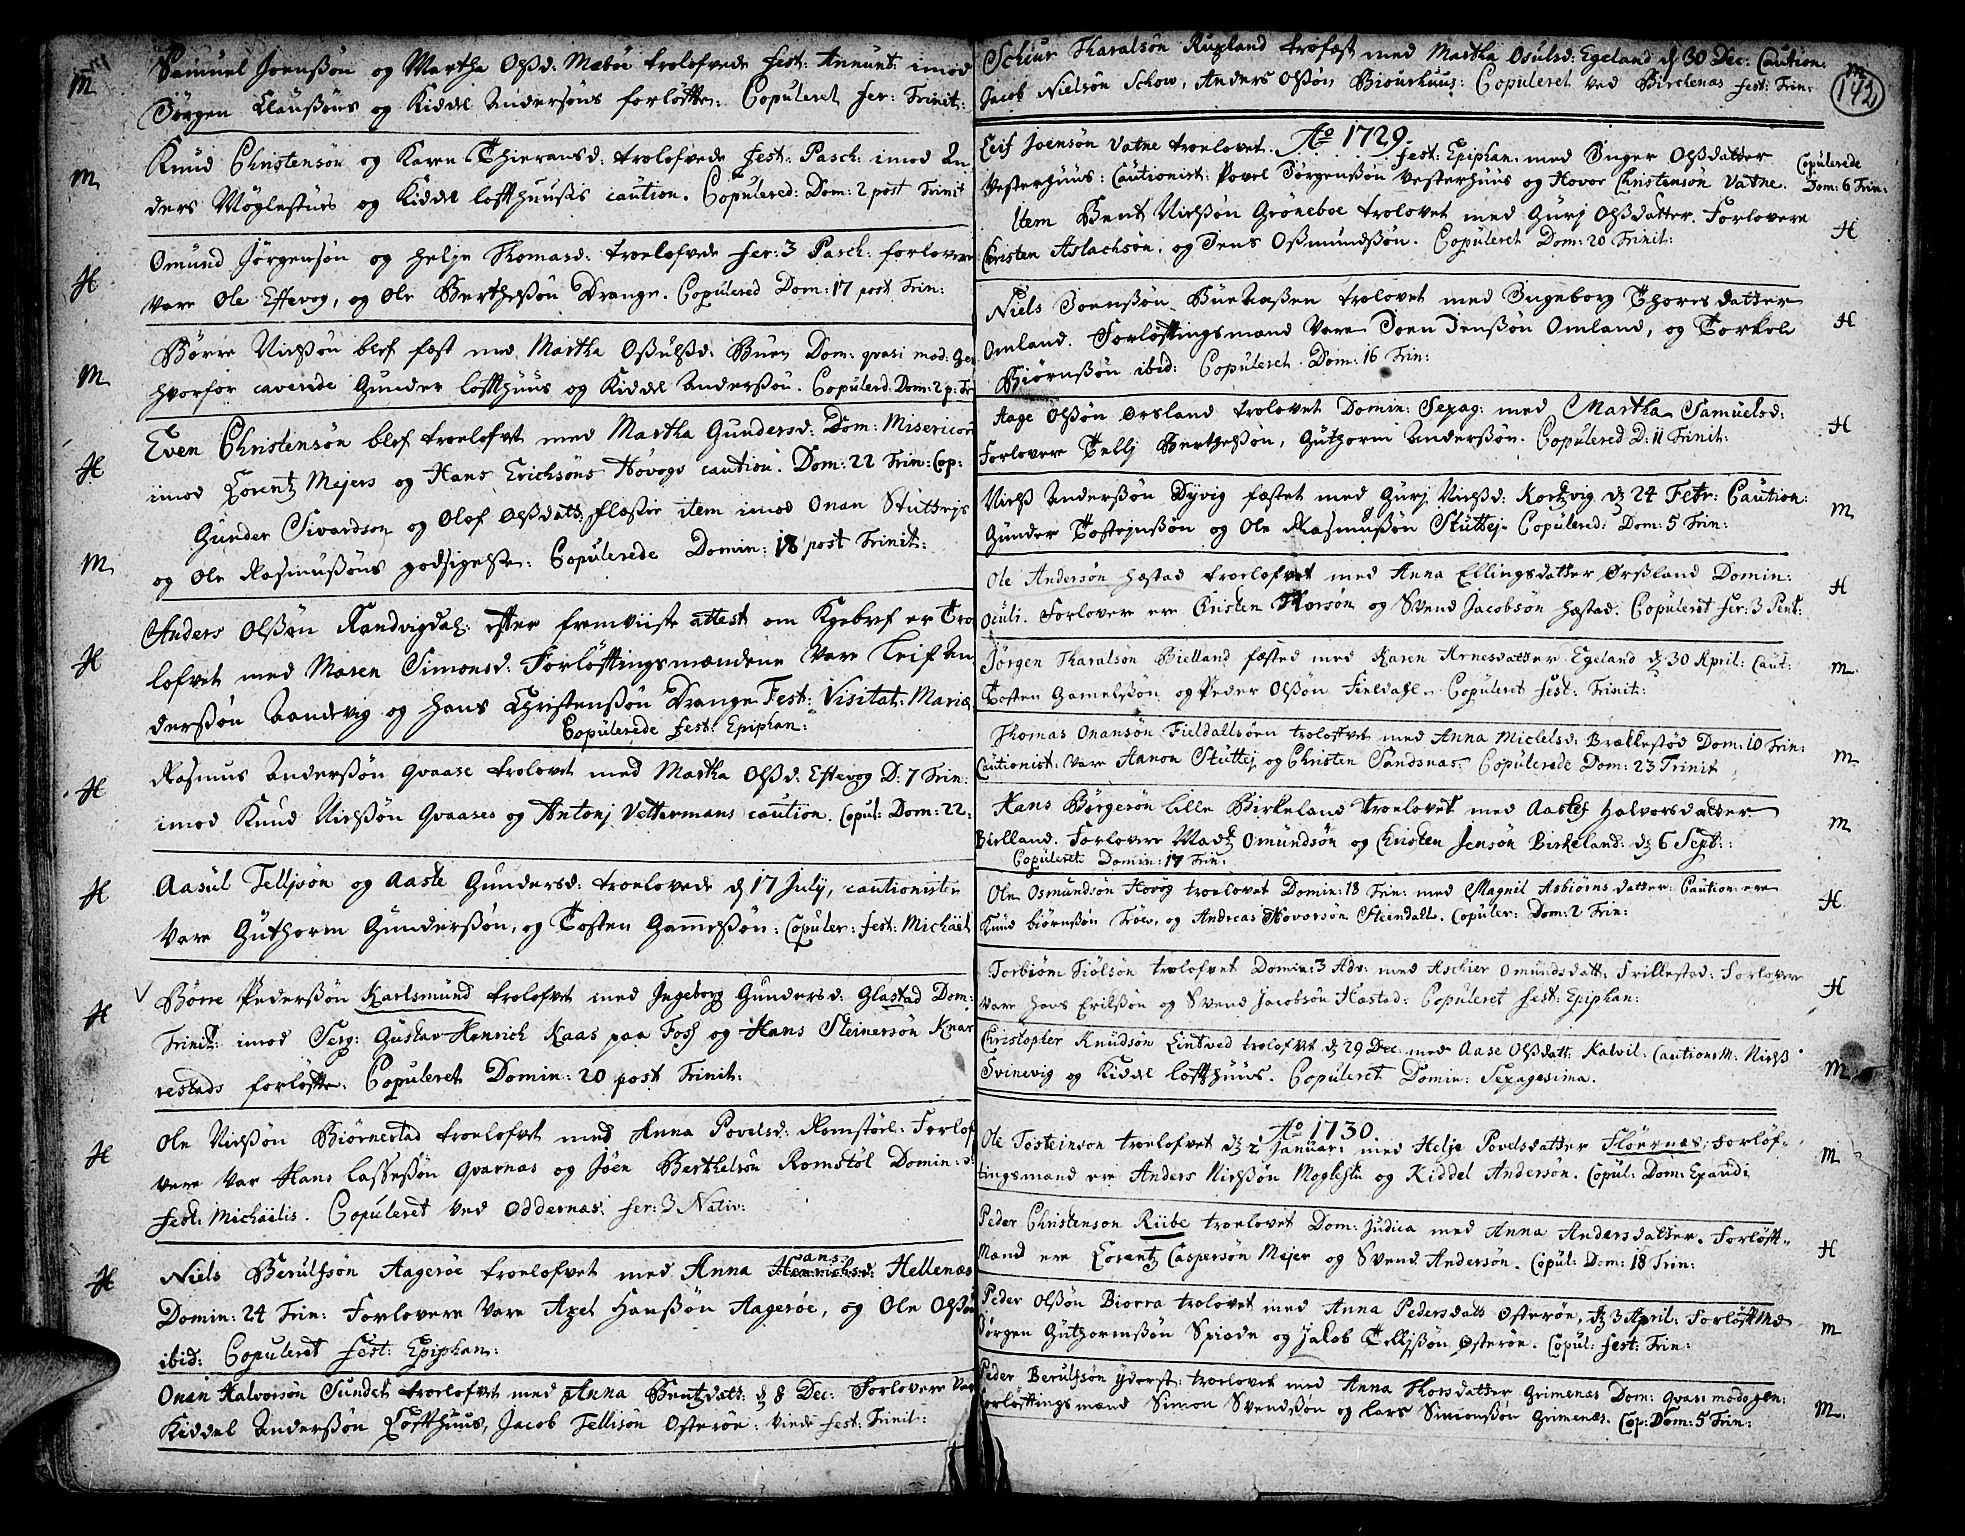 M Samuel Joensøn og Martha Olsd: Mæbøe trolofvede fest: Annunt: imod
Jörgen Clausøns og Kiddel Andersøns forløfte: Copuleret fer: Trinit:
M Knud Christensøn og Karen Thieransd: trolofvede fest: Pasch: imod An
ders Møglestues og Kiddel loffthuusis caution. Copulered: Dom: 2 post Trinit
H Omund Jörgensøn og Helje Thomasd: troelofvede fer: 3 Pasch: forlovere
vare Ole Effevog, og Ole Berthelsøn Drange. Copulered Dom: 17 post Trin:
M Børre Nielsøn blef fæst med Martha Oßulßd: Buen Dom: qvasi mod: Gen
hvorfor caverede Gunder loffthuus og Kiddel Andersøn. Copulerd. Dom: 2 p: Tr
H Even Christensøn blef troelofvet med Martha Gundersd: Dom: Misericord
imod Lorentz Mejers og Hans Erichsøns Høvogs caution. Dom: 22 Trin: Cop:
Gunder Sivardson og Olof Olßdatt: Flaßøe item imod Onan Stuttejs
M og Ole Rasmußøns godsigelse: Copulerede Domin: 18 post Trinit:
Anders Olßøn Randvigdal: efter fremviiste attest om Kgebref er Tro
H lofvet med Maren Simonsd: Forløfftingsmændene vare Leif An
derßøn Aandvig og Hans Christenßøn Drange Fest: Visitat: Mariæ
Copulerede fest: Epiphan:
H Rasmus Anderßøn Qvaase trolovet med Martha Olßd: Eftevog D: 7 Trin:
imod Knud Nielßøn Qvaases og Antonj Vettermans caution. Copul: Dom: 22:
H Aasul Telljsøn og Aaste Gundersd: troelovede d 17 July, cautionister
vare Guthorm Gunderßøn, og Tosten Gammelßøn: Copuler: fest: Michaël
V H Børre Pederßøn Karlsmund trolofvet med Ingeborg Gundersd: Glastad Dom:
Trinit: imod Serg: Gustav Henrich Kaas paa Foss og Hans Steinersøn Knar
restads forløffte: Copuleret Domin: 20 post Trinit:
H Ole Nielßøn Biørnestad troelofvet med Anna Povelsd: Romstøel: Forlof
vere var Hans Lasseßøn Qvarnæs og Joen Berthelsøn Romstøl Domin:
fest: Michaëlis. Copuleret ved Oddernæs: fer: 3 Nativ:
ans
H Niels Berulfsøn Aagerøe troelofvet med Anna Henrichsd: Hellenæs
Domin: 24 Trin: Forlovere vare Axel Hanßøn Aagerøe, og Ole Olßøn
ibid: Copuleret fest: Epiphan:
Onan Halvorsøn Sundet troelofvet med Anna Bentzdatt: d 8 Dec: Forlovere var
Kiddel Anderßøn Loffthuus, Jacob Tellisøn Østerøe: viede fest: Trinit:
Haralsøn Rugland trofæst med Martha Osulsd: Egeland d 30 Dec: Caution:
Jacob Nielsøn Schow, Anders Olßøn Biourhuus: Copuleret ved Birchenæs fest: Trin: M
142
Ao 1729.
Leif Joensøn Vatne troelovet fest: Epiphan: med Inger Olßdatter Copulerede
Vesterhuus: Cautionist: Povel Jörgensøn Vesterhuus og Hovor Christensøn Vatne. Dom: 6 Trin:
Item Bent Nielßøn Grøneboe trolovet med Gurj Olßdatter. Forlovere H
Christen Aslachsøn, og Jens Oßmundßøn. Copuleret Dom: 20 Trinit:
Niels Joenßøn trolovet med Ingeborg Thores datter H
Omland. Forløfftingsmænd vare Joen Jenßøn Omland, og Torkel
Biørnßøn ibid: Copuleret Dom: 16 Trin:
Aage Olßøn Ørsland trolovet Domin: Sexag: med Martha Samuelsd: H
Forlovere Tellj Berthelßøn, Guthorm Anderßøn. Copulered D: 11 Trinit:
Nielß Anderßøn Dyvig fæstet med Gurj Nielßd: Kortzvig d 24 Febr: Caution: M
Gunder Tostejnßøn og Ole Rasmußøn Stuttej. Copulered: Dom: 5 Trin:
Ole Andersøn Hæstad troelofvet med Anna Ellingsdatter Ørßland Domin: H
Oculi. Forlovere ere Cristen Thorsøn og Svend Jacobsøn Hæstad. Copuleret fer: 3 Pent:
Jørgen Tharalsøn Bielland fæsted med Karen Arnesdatter Egeland d 30 April: Caut: M
Tosten Gamelßøn og Peder Olßøn Fieldahl. Copuleret fest: Trinit:
Thomas Onansøn Fieldallsøen troloffvet med Anna Michelsd: Brækkestød Dom: 10 Trin:
Cautionist: vare Aanon Stuttej og Christen Sandsnæs. Copulerede Dom: 23 Trinit M
Hans Børgesøn Lille Birkeland troelovet med Aaslef Halvorsdatter
Bielland. Forlovere Madtz Omundsøn og Christen Jensøn Birkeland: d 6 Sept: M
Copuleret Domin: 17 Trin:
Ole Osmundsøn Hovog troelovet Domin: 18 Trin: med Magnil Asbiørns datter: Caution: ere
Knud biørnßøn Trøe, og Andreas Hovorsøn Steendall. Copuler: Dom: 2 Trin: H
Torbiørn Tiølsøn trolofvet Domin: 3 Adv: med Aschier Omundsdatt: Frillestad: Forlovere
vare Hans Erilßøn og Svend Jacobsøn Hæstad: Copuleret fest: Epiphan: H
Christopher Knudsøn Lintved trolofvet d 29 Dec: med Aase Olßdatt: Kalvil: CautionsM: Nielß
Svinevig og Kiddel loffthuus. Copuleret Domin: Sexagesima. M
Ao 1730.
Ole Tosteinsøn troelofvet d 2 Januar: med Helje Povelsdatter Fløernæs, Forløf- M
tingsmænd ere Anders Nielßøn Moglestu og Kiddel Andersøn. Copul: Dom: Exaudi
Peder Christensøn Riibe troelovet Dom: Judica med Anna Andersdatter. Forløfft-
mænd ere Lorentz Caspersøn Mejer og Svend Andersøn. Copul: Dom: 18 Trin: H
Peder Olßøn Biorra trolovet med Anna Pedersdatt: Østerøe, d 3 April: Forløfft Md
Jörgen Guthormßøn Spiode og Jakob Tellißøn Østerøe. Copul: fest: Trin: M
Peder Berulfsøn yderst: troelovet med Anna Thorsdatter Grimenæs Dom: qvasi modogen:
forløfftingsmænd Simon Svendßøn og Lars Simonßøn Grimenæs. Cop: Dom: 5 Trin: M.